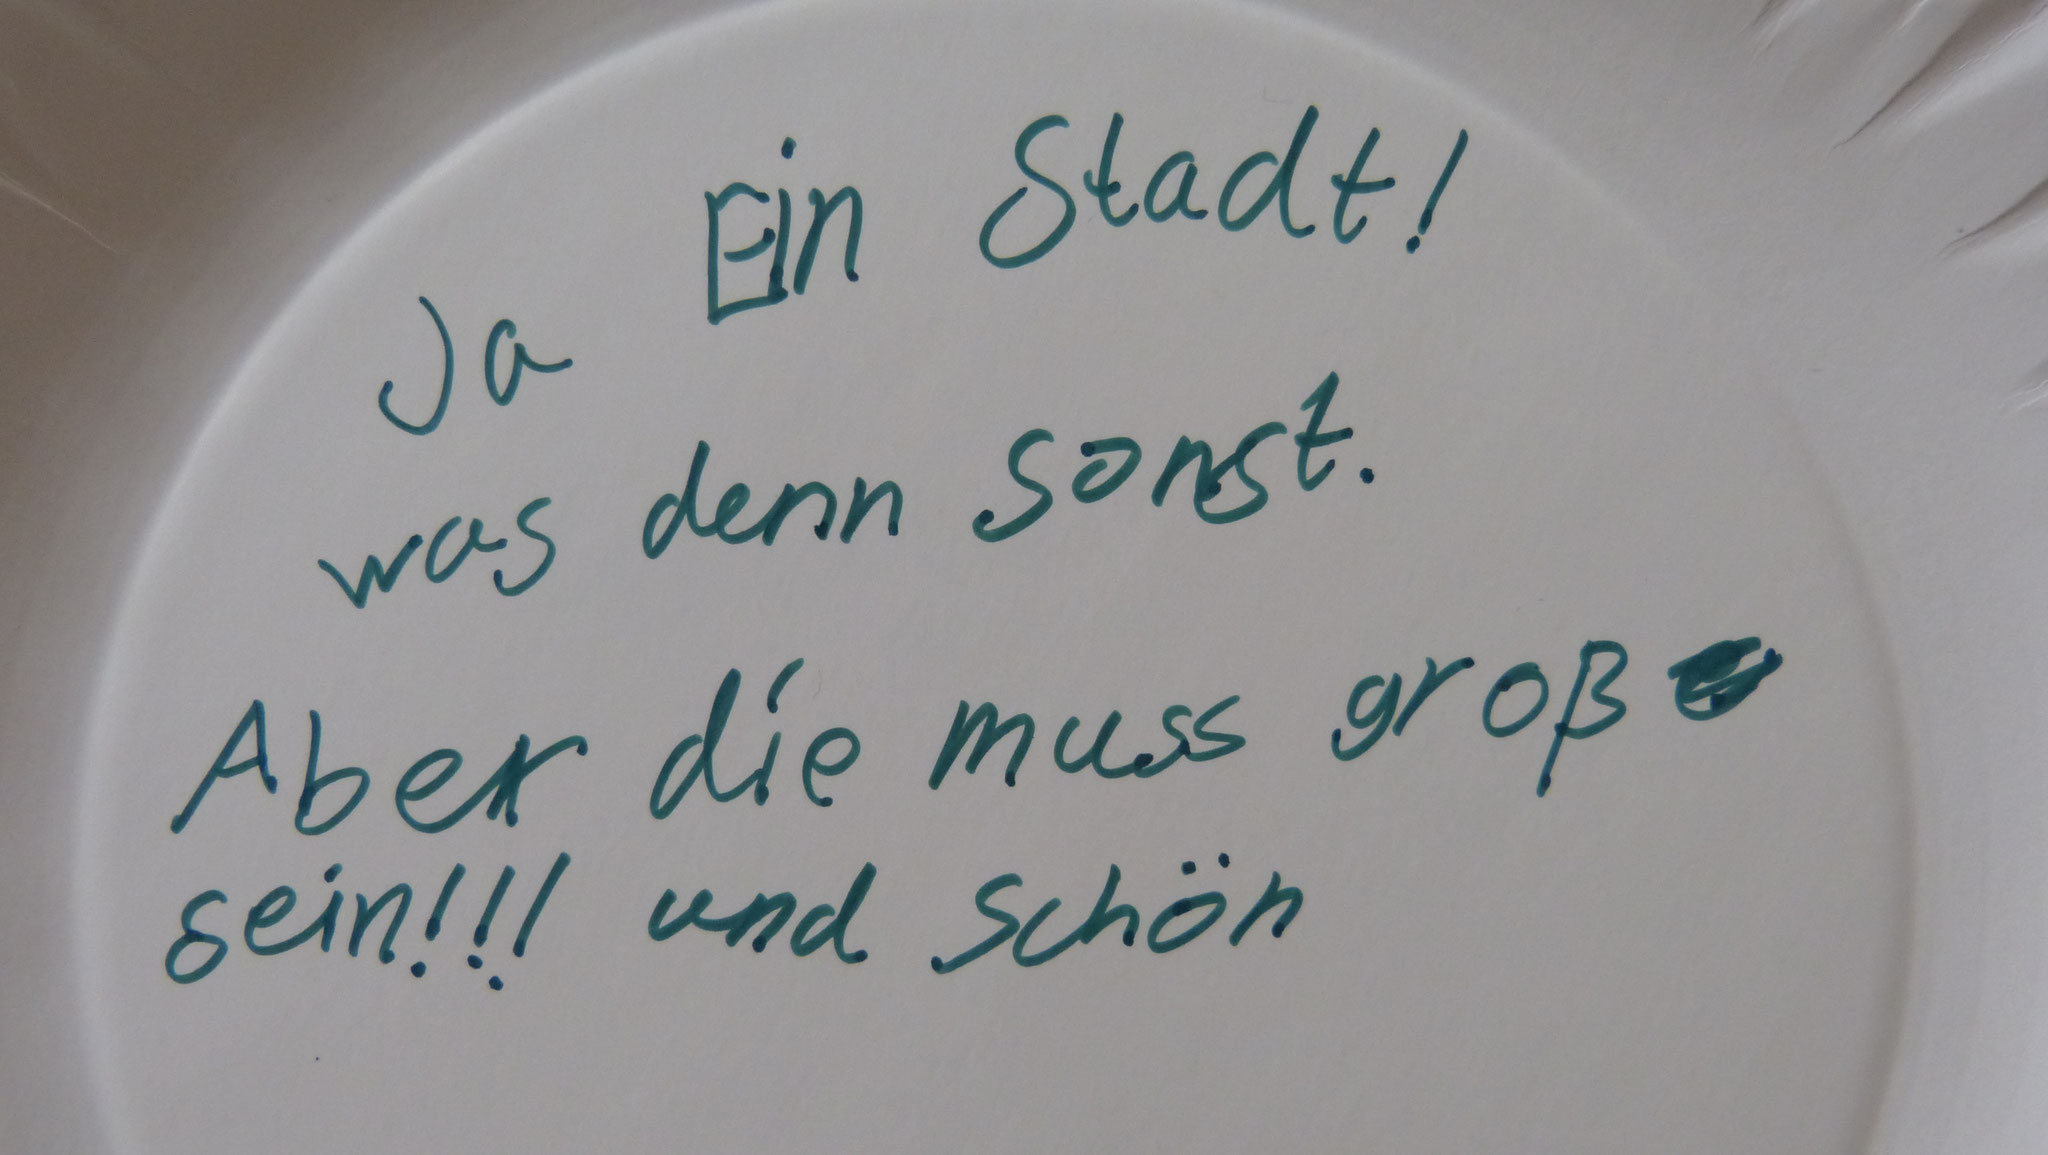 Ja Ein Stadt!
was denn sonst.
Aber die muss groß
sein!!! und schön